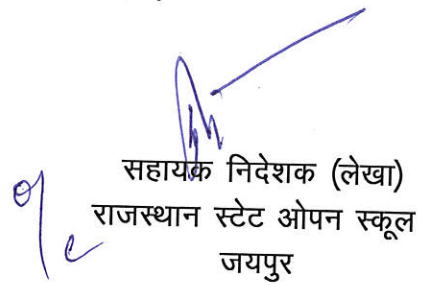 सहायक निदेशक (लेखा)
राजस्थान स्टेट ओपन स्कूल
जयपुर